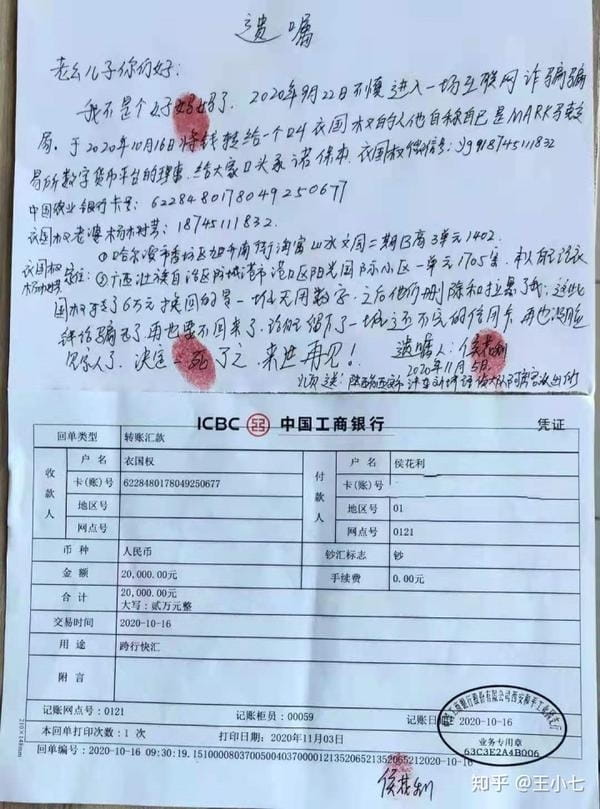 遗嘱
老幺儿子你们好:
我不是个好妈妈了. 2020年9月22日不慎进入一场互联网诈骗骗
局. 于2020年10月16日将钱转给一个叫衣国权的人他自称自己是MARK
易所数字货币平台的理事. 给大家口头承诺保本. 衣国权微信号:
中国农业银行卡号: 6228480178049250677
衣国权老婆 18745111832.
衣国权
①哈尔滨市香坊区旭升南街海富山水文园二期B高3单元1402.
住址: ②广西壮族自治区防城港市港口区阳光国际小区一单元1705室. 本人
国权 了6万元换回的是一堆无用数字. 之后他们删除和拉黑了我. 这些
钱给骗子了再也要不回来了. 一堆还不完的信用卡. 再也没脸
见家人了. 决定一死了之 来世再见!
遗嘱人: 侯花利
2020年11月5日
ICBC 中国工商银行 凭证
回单类型 转账汇款
收款人 户名 衣国权 付款人 户名 侯花利
卡(账)号 6228480178049250677 卡(账)号
地区号 地区号 01
网点号 网点号 0121
币种 人民币 钞汇标志 钞
金额 20,000.00元 手续费 0.00元
合计 20,000.00元
大写:贰万元整
交易时间 2020-10-16
用途 跨行快汇
附言
记账网点号: 0121 记账柜员: 00059 记账日期 2020-10-16
本回单打印次数: 1 次 打印日期: 2020年11月03日
业务专用章
63C3E2A4B006
回单编号: 2020-10-16 09:30:19.
210×148mm
侯花利
知乎 @王小七